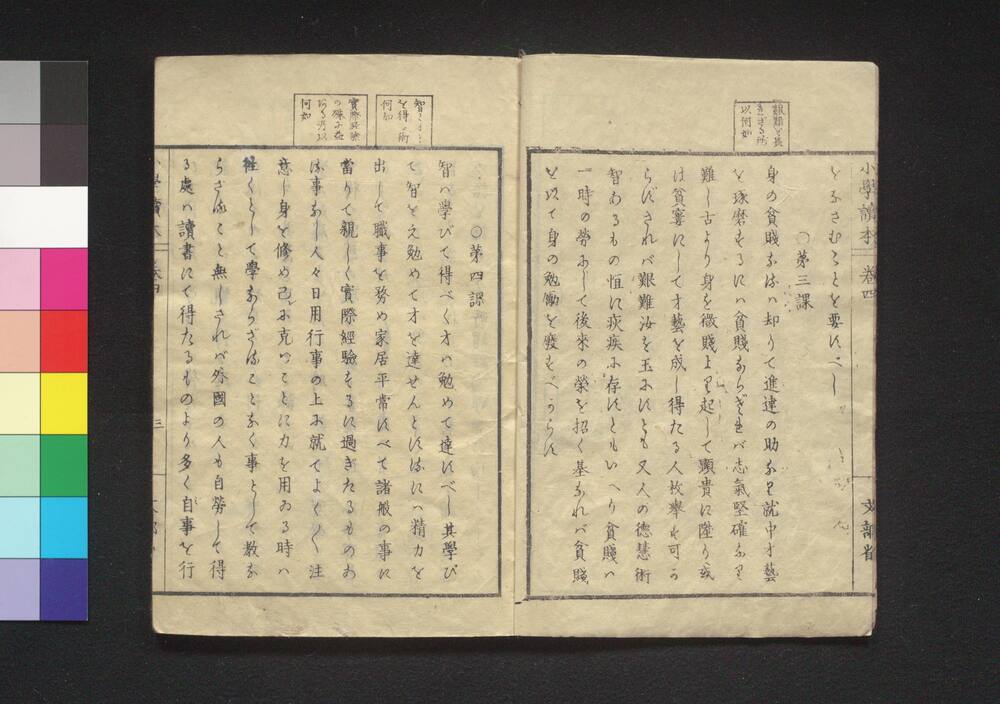 小學讀本 卷四 文部省
をなさむことを要すべし
○第三課
艱難を長
き
以何如
身の貧賤なるハ却りて進達の助なり就中才藝
を琢磨するにハ貧賤ならざれバ志氣堅確なり
難し古より身を微賤より起して顯貴に陞り或
は貧窶にして才藝を成し得たる人枚舉す可か
らずされバ艱難汝を玉にすとも又人の德慧術
智あるもの恒に疢疾に存すともいへり貧賤ハ
一時の勞にして後來の榮を招く基なれバ貧賤
を以て身の勉勵を廢すべからず
○第四課
智と才と
を得る術
何如
智ハ學びて得べく才ハ勉めて達すべし其學び
て智をえ勉めて才を達せんとするにハ精力を
出して職事を務め家居平常すべて諸般の事に
實際經驗
の
何如
當りて親しく實際經驗するに過ぎたるものあ
る事なし人々日用行事の上に就てよく〳〵注
意し身を修め己に克つことに力を用ゐる時ハ
往くとして學ならざることなく事として教な
らざること無しされバ外國の人も自勞して得
る處ハ讀書にて得たるものより多く自事を行
三